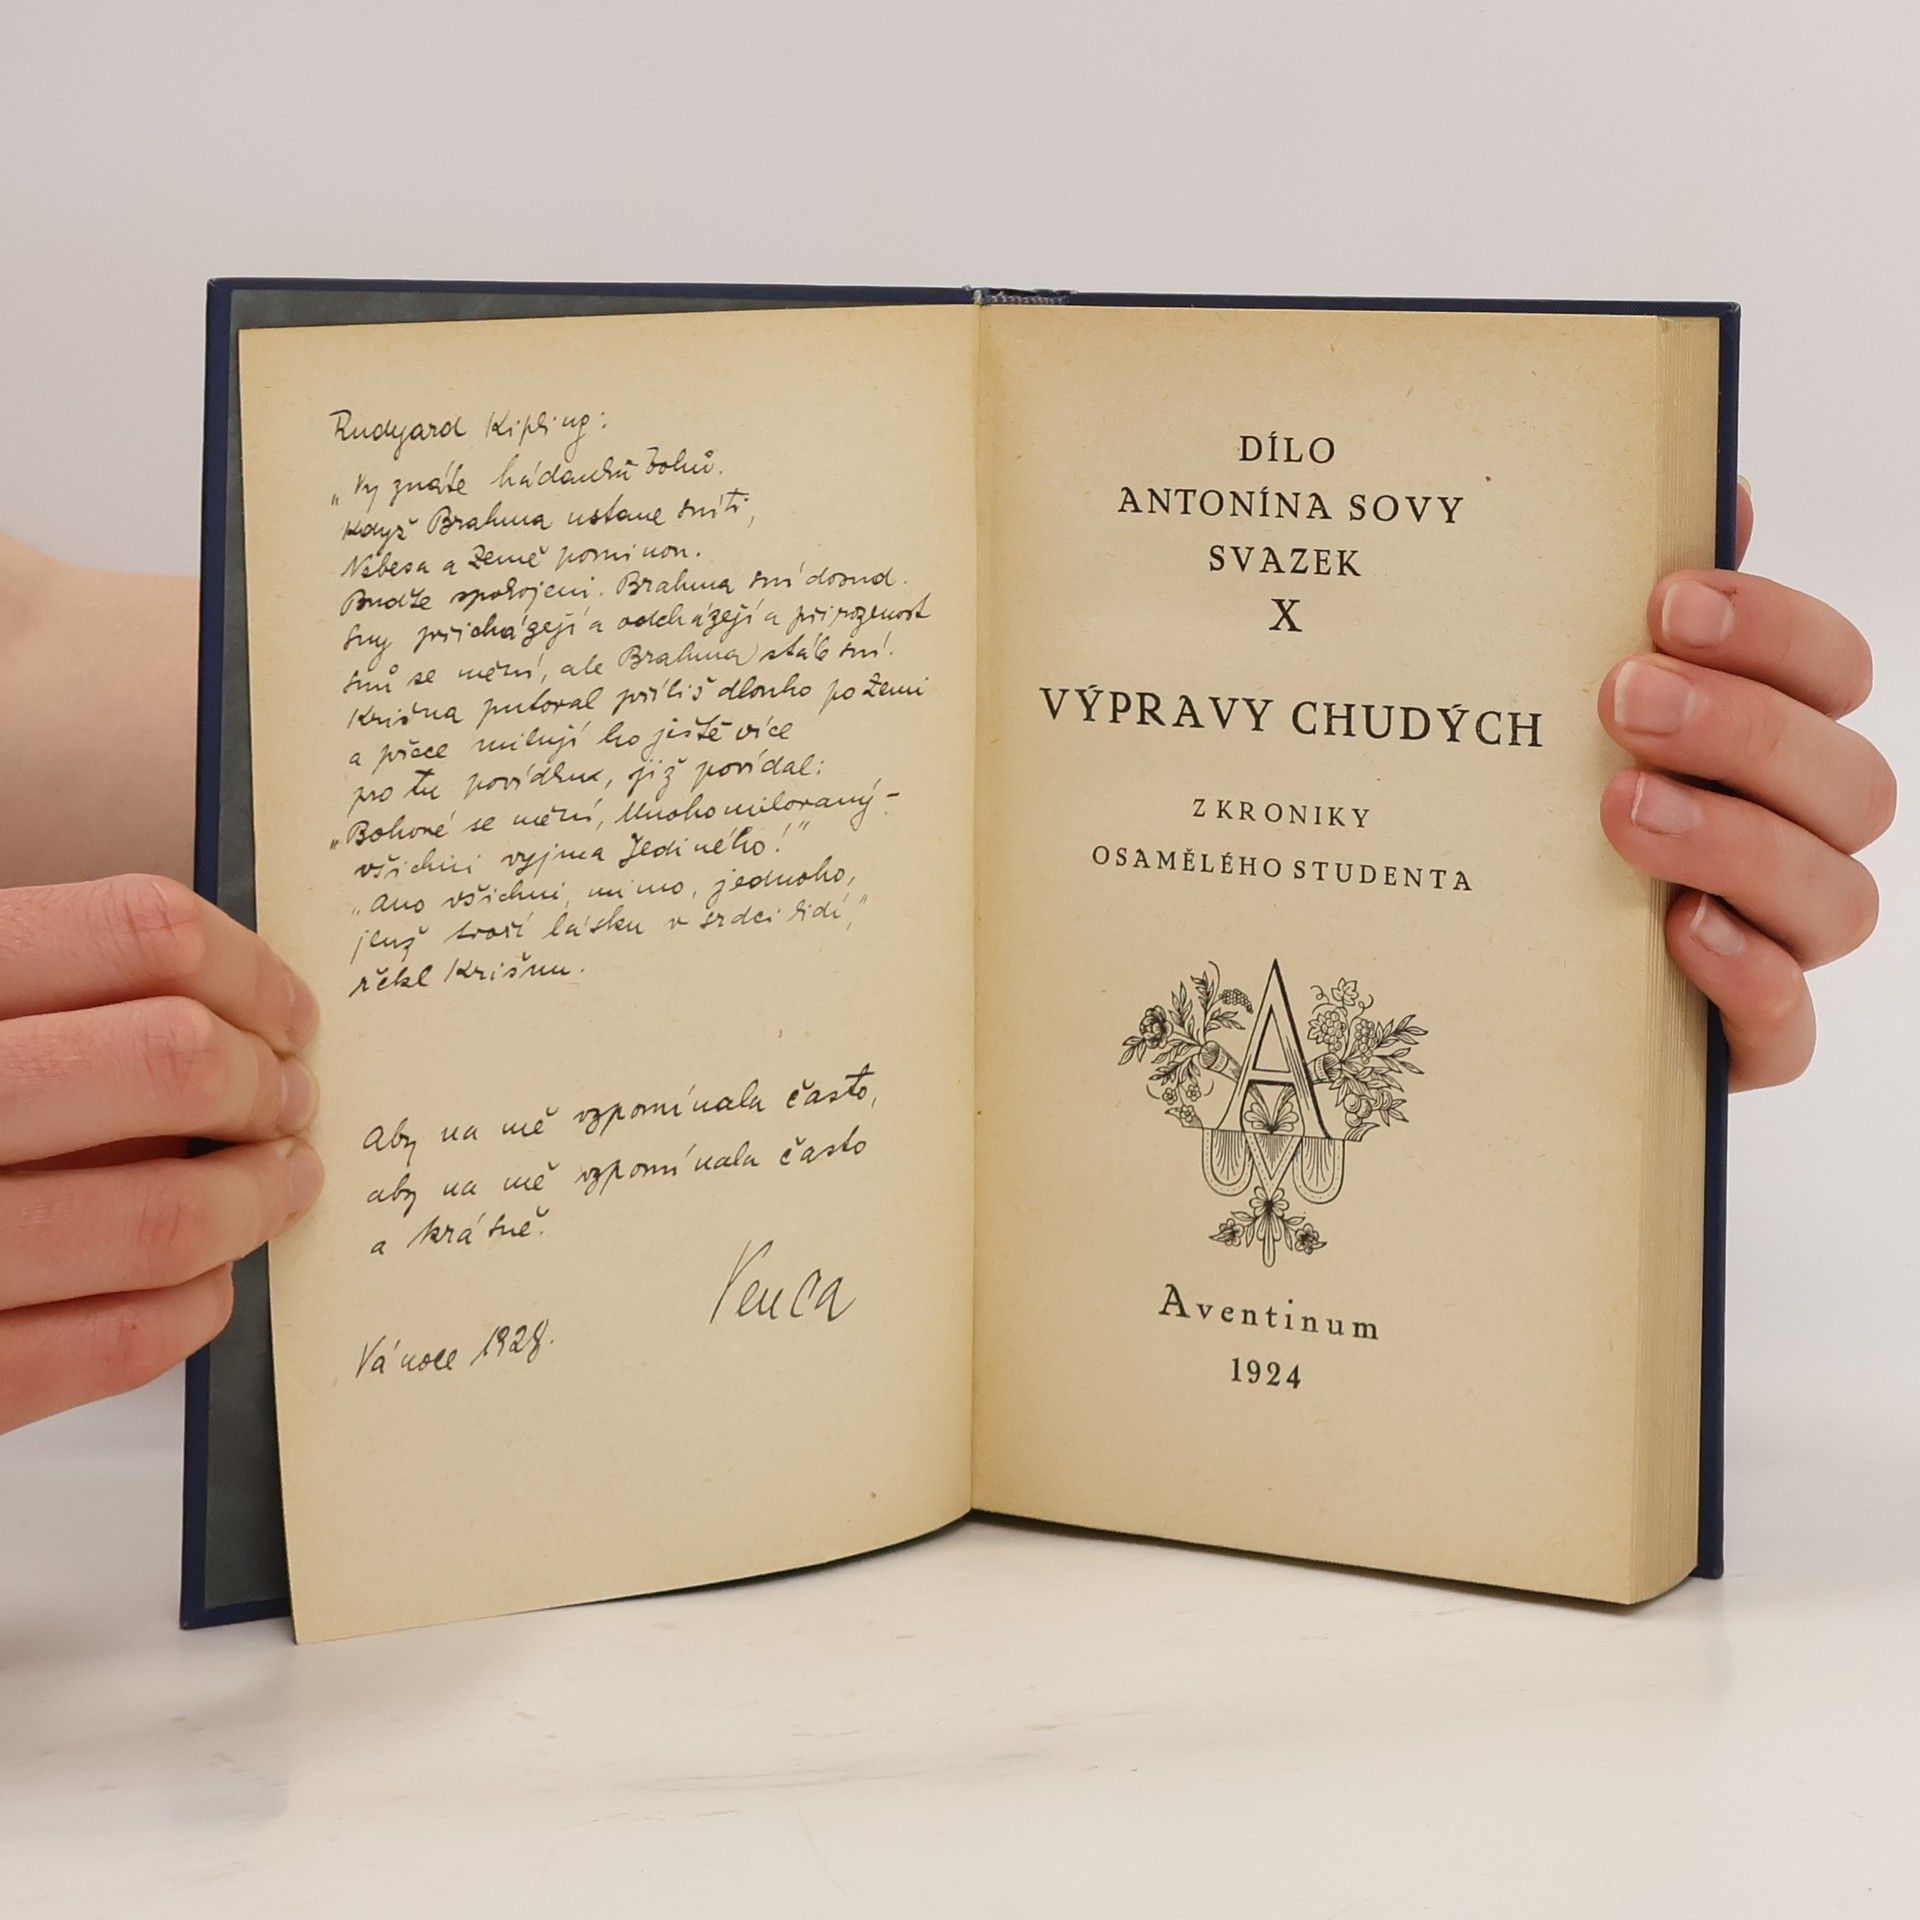 Rudyard Kipling:
„Vy znáte hádanku bohů.
Když Brahma ustane sníti,
Nebesa a Země pominou.
Buďte spokojeni. Brahma sní dosud.
Sny přicházejí a odcházejí a přirozenost
snů se mění, ale Brahma stále sní.
Krišna putoval příliš dlouho po Zemi
a přece miluji ho ještě více
pro tu povídku, již povídal:
„Bohové se mění, Mnohomilovaný –
všichni vyjma Jediného!"
„Ano všichni, mimo, jednoho,
jenž tvoří lásku v srdci lidí,"
řekl Krišna.
Aby na mě vzpomínala často,
aby na mě vzpomínala často
a krásně.
Venca
Vánoce 1928.
DÍLO
ANTONÍNA SOVY
SVAZEK
X
VÝPRAVY CHUDÝCH
Z KRONIKY
OSAMĚLÉHO STUDENTA
A
Aventinum
1924